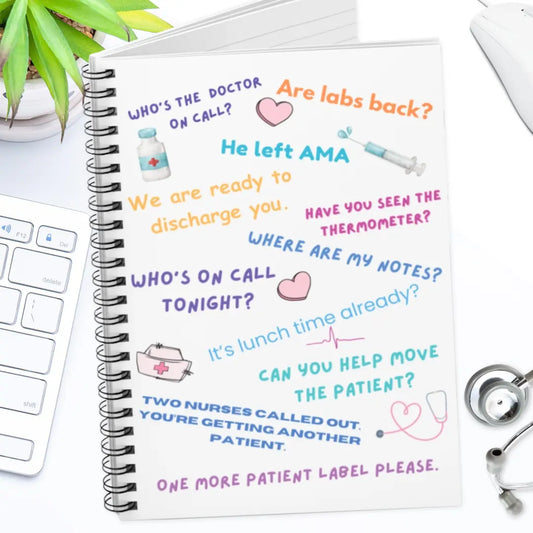 WHO'S THE DOCTOR
ON CALL?
Are labs back?
He left AMA
We are ready to
discharge you.
HAVE YOU SEEN THE
THERMOMETER?
WHERE ARE MY NOTES?
WHO'S ON CALL
TONIGHT?
It's lunch time already?
CAN YOU HELP MOVE
THE PATIENT?
TWO NURSES CALLED OUT.
YOU'RE GETTING ANOTHER
PATIENT.
ONE MORE PATIENT LABEL PLEASE.
F12
Del
delete
return
shift